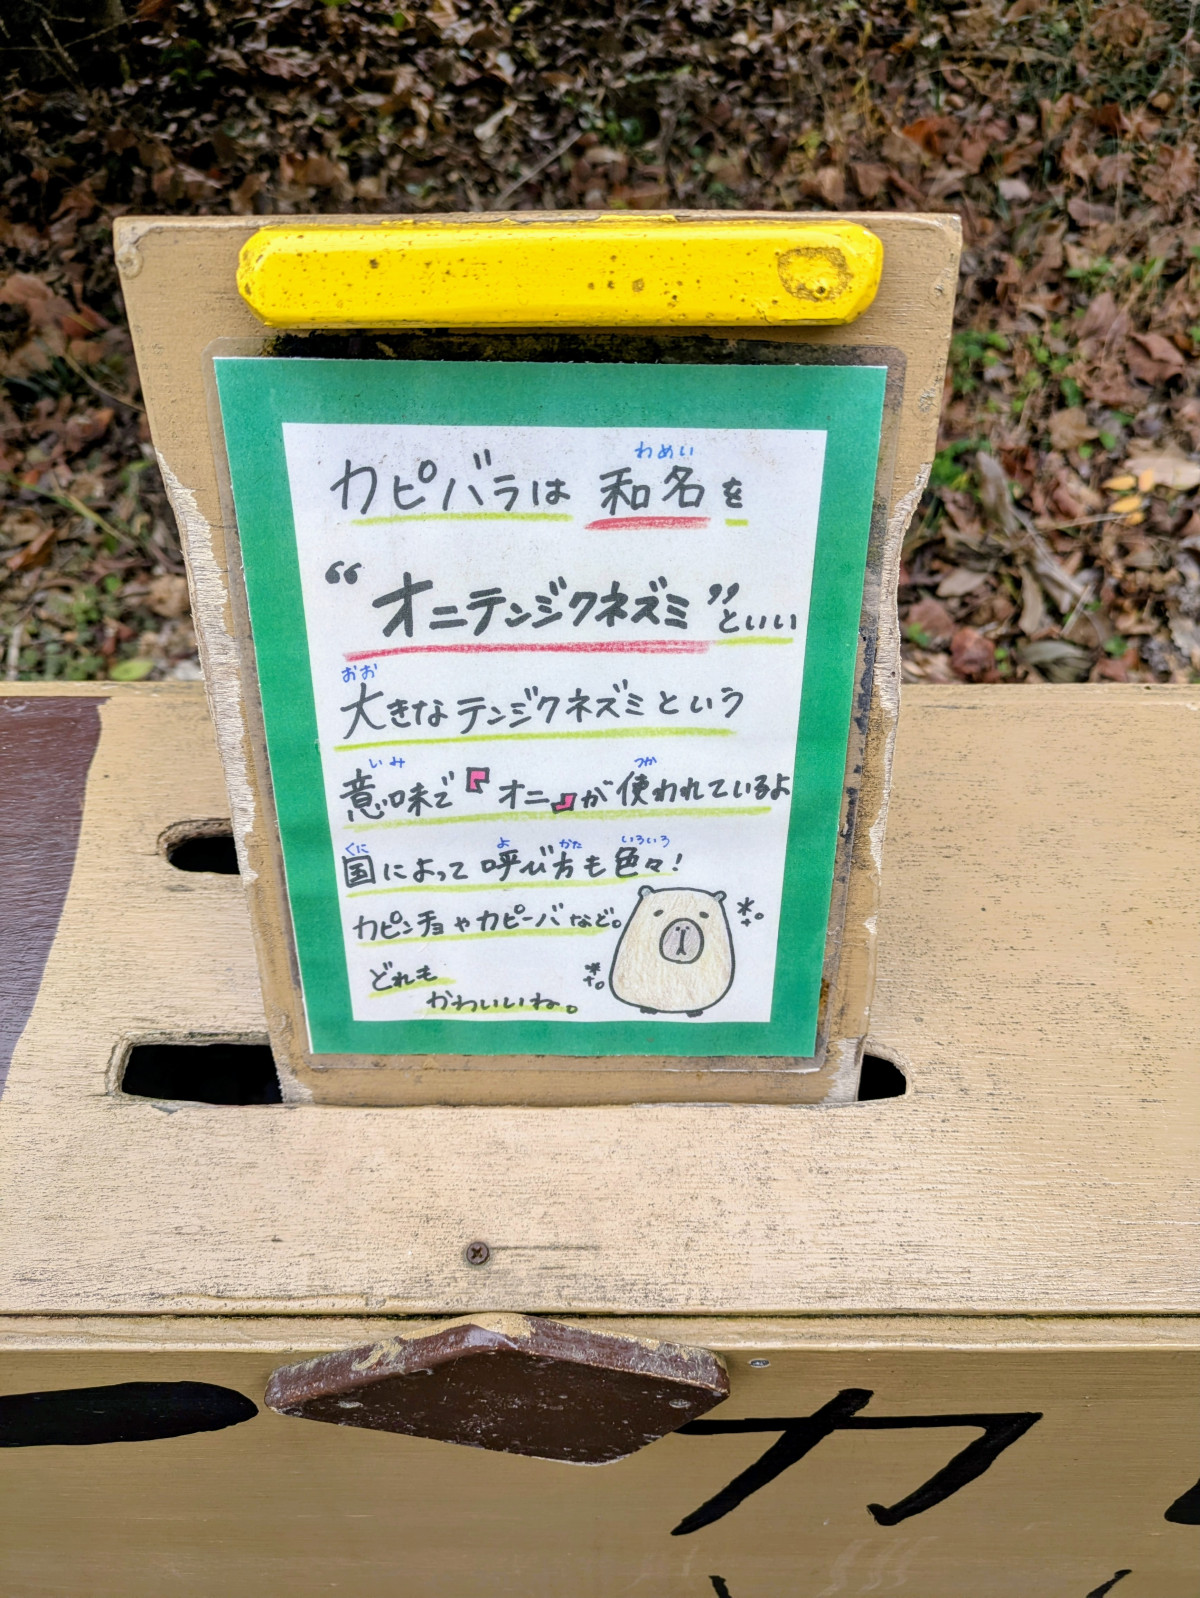 カピバラは 和名を
わめい
“オニテンジクネズミ”といい
おお
大きなテンジクネズミという
いみ つか
意味で『オニ』が使われているよ
くに よ かた いろいろ
国によって呼び方も色々!
カピンチョやカピーバなど。
どれも
かわいいね。
カ